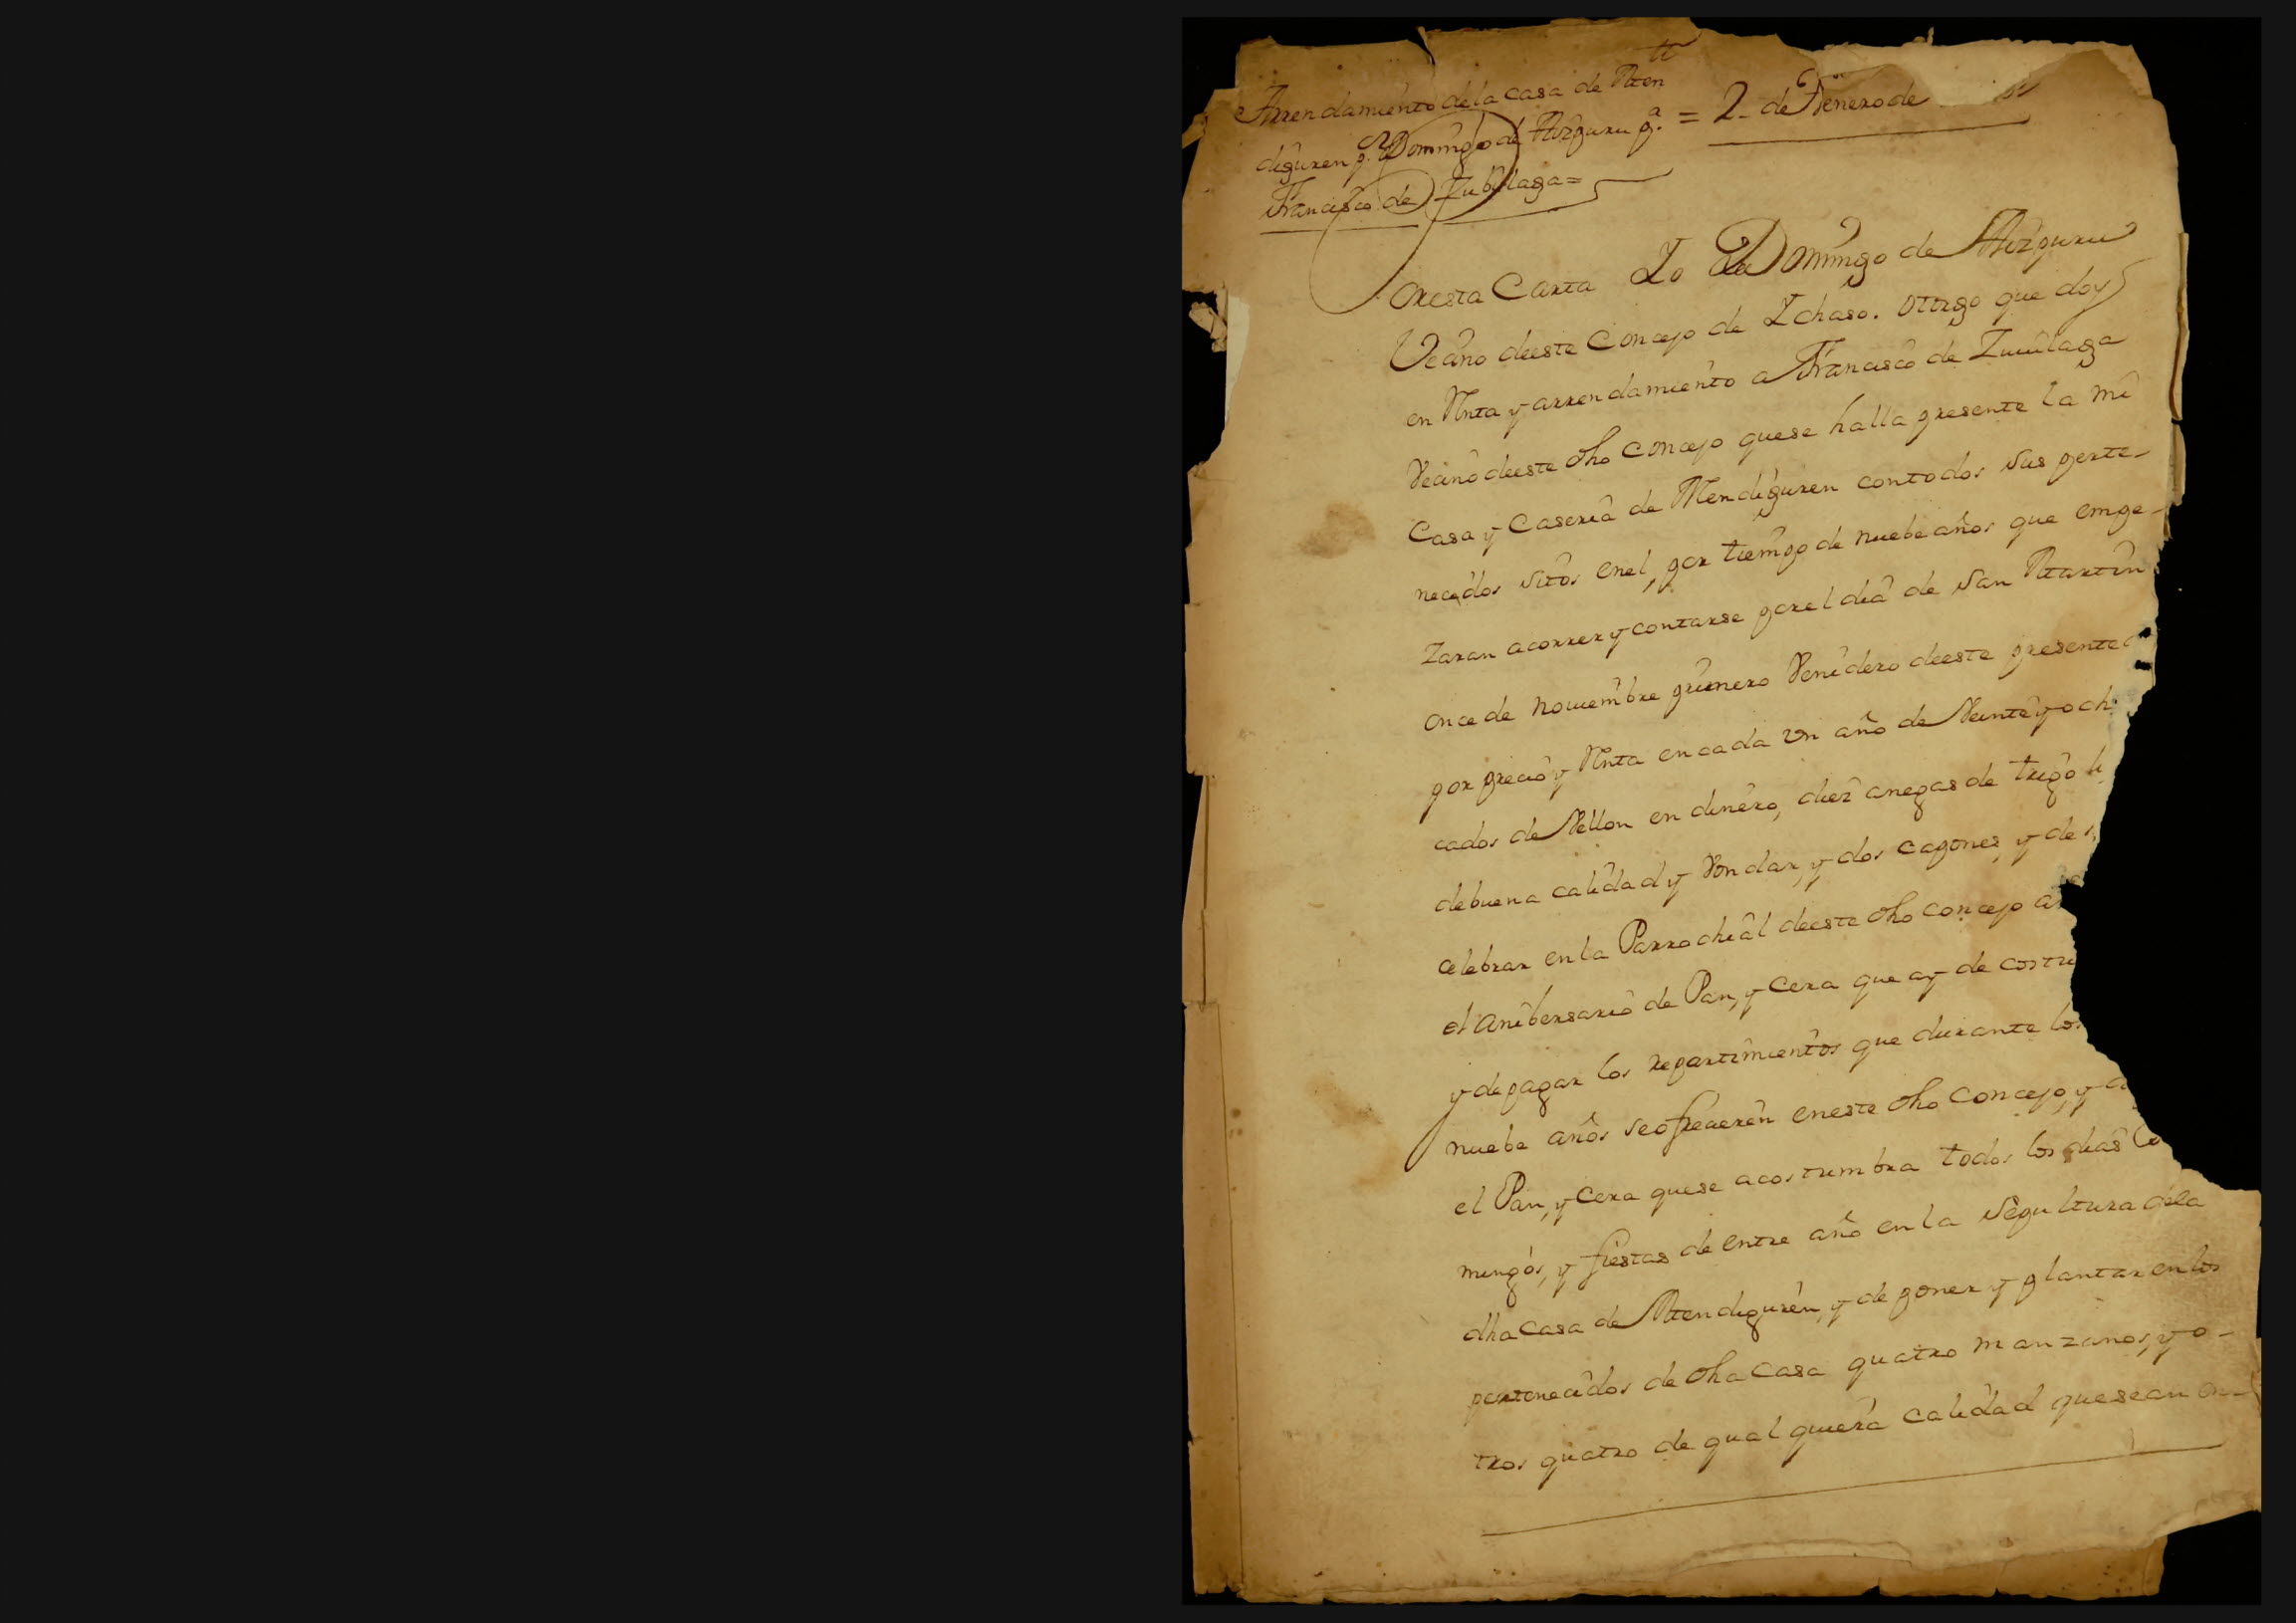 Arrendamiento dela casa de Men
diguren p.r Domingo de Aizguru p.a = 2 de Henero de
Francisco de Zubilaga =
Por esta Carta Yo Domingo de Aizpuru
Vecino deeste Concejo de Ichaso. otorgo que doy
en Renta y arrendamiento a Francisco de Zuuilaga
Vecino deeste dho Concejo quese halla presente la mi
Casa y Caseria de Mendiguren contodos sus perte-
necidos sitos enel, por tiempo de nuebe años que empe-
zaran acorrer y contarse porel dia de San Martin
once de nouiembre primero Venidero deeste presente
por precio y Renta en cada Un año de Veinte y och
cados de Vellon en dinero, diez anegas de trigo li
debuena calidad y Vondar, y dos capones, y de
celebrar en la Parrochial deeste dho concejo
el anibersario de Pan, y Cera que ay de costu
y de pagar los repartimientos que durante los
nuebe años se ofrecieren eneste dho Concejo, y
el Pan, y Cera quese acostumbra todos los dias
mingos, y fiestas de entre año en la Sepultura dela
dha Casa de Mendiguren, y de poner y plantar en los
pertenecidos de dha Casa quatro manzanos, y o-
tros quatro de qual quiera calidad quesean en-